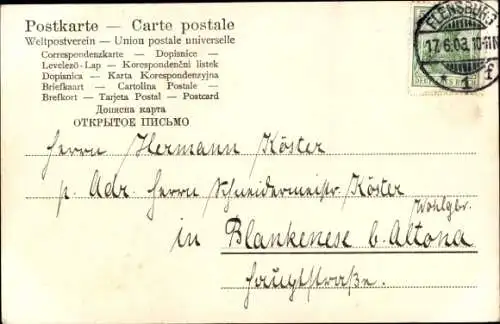 Postkarte — Carte postale
Weltpostverein — Union postale universelle
Correspondenzkarte — Dopisnice —
Levelező-Lap — Korespondenční listek
Dopisnica — Karta Korespondenzyjna
Briefkaart — Cartolina Postale —
Brefkort — Tarjeta Postal — Postcard
Дописна карта
ОТКРЫТОЕ ПИСЬМО
FLENSBURG
17.6.03. 10-11N
1 f
Herrn Hermann Köster
p. Adr. Herrn Schneidermeistr. Köster
Wohlgbr.
in Blankenese b. Altona
Hauptstraße.